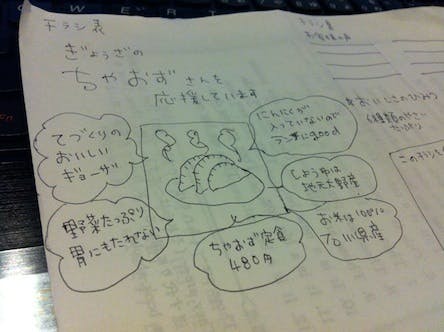 チラシ表
ぎょうざの
ちゃおずさんを
応援しています
てづくりの
おいしい
ギョーザ
にんにくが
入っていないので
ランチにgood
しょう油は
地元大野産
お米は100%
石川県産
ちゃおず定食
480円
野菜たっぷり
胃にもたれない
おいしさのひみつ
たっぷり
このチラシ